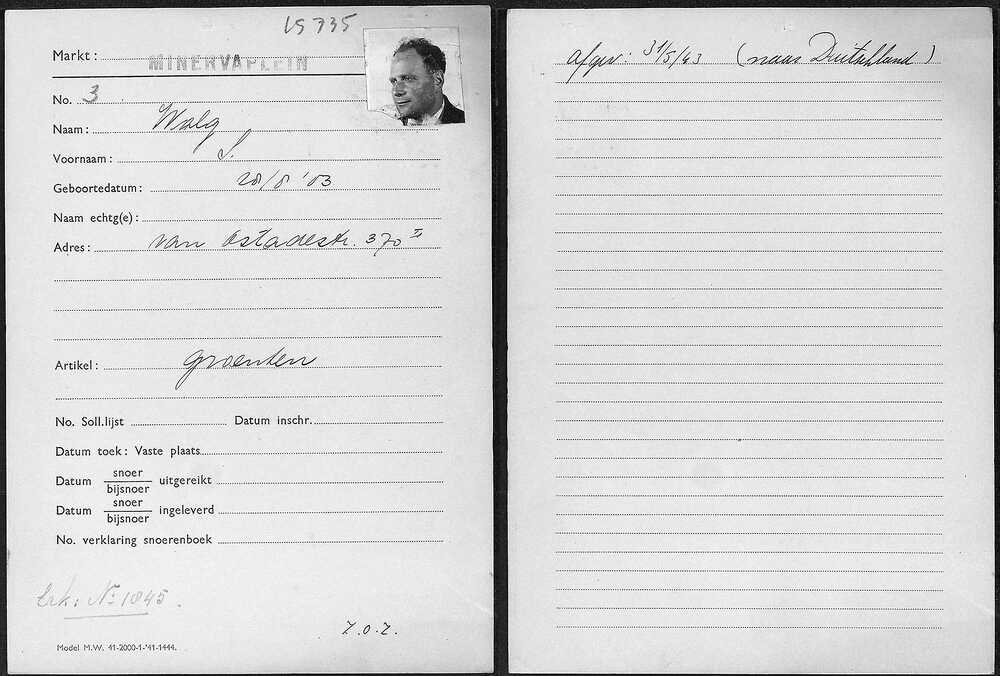 15735
Markt: MINERVAPLEIN
No. 3
Naam: Walg
Voornaam: S.
Geboortedatum: 28/8 '03
Naam echtg(e):
Adres: van Ostadestr. 370 II
Artikel: groenten
No. Soll.lijst Datum inschr.
Datum toek: Vaste plaats
Datum snoer/bijsnoer uitgereikt
Datum snoer/bijsnoer ingeleverd
No. verklaring snoerenboek
Erk: No 1845.
Z.O.Z.
Model M.W. 41-2000-1-'41-1444.
afgev: 31/5/43 (naar Duitschland)